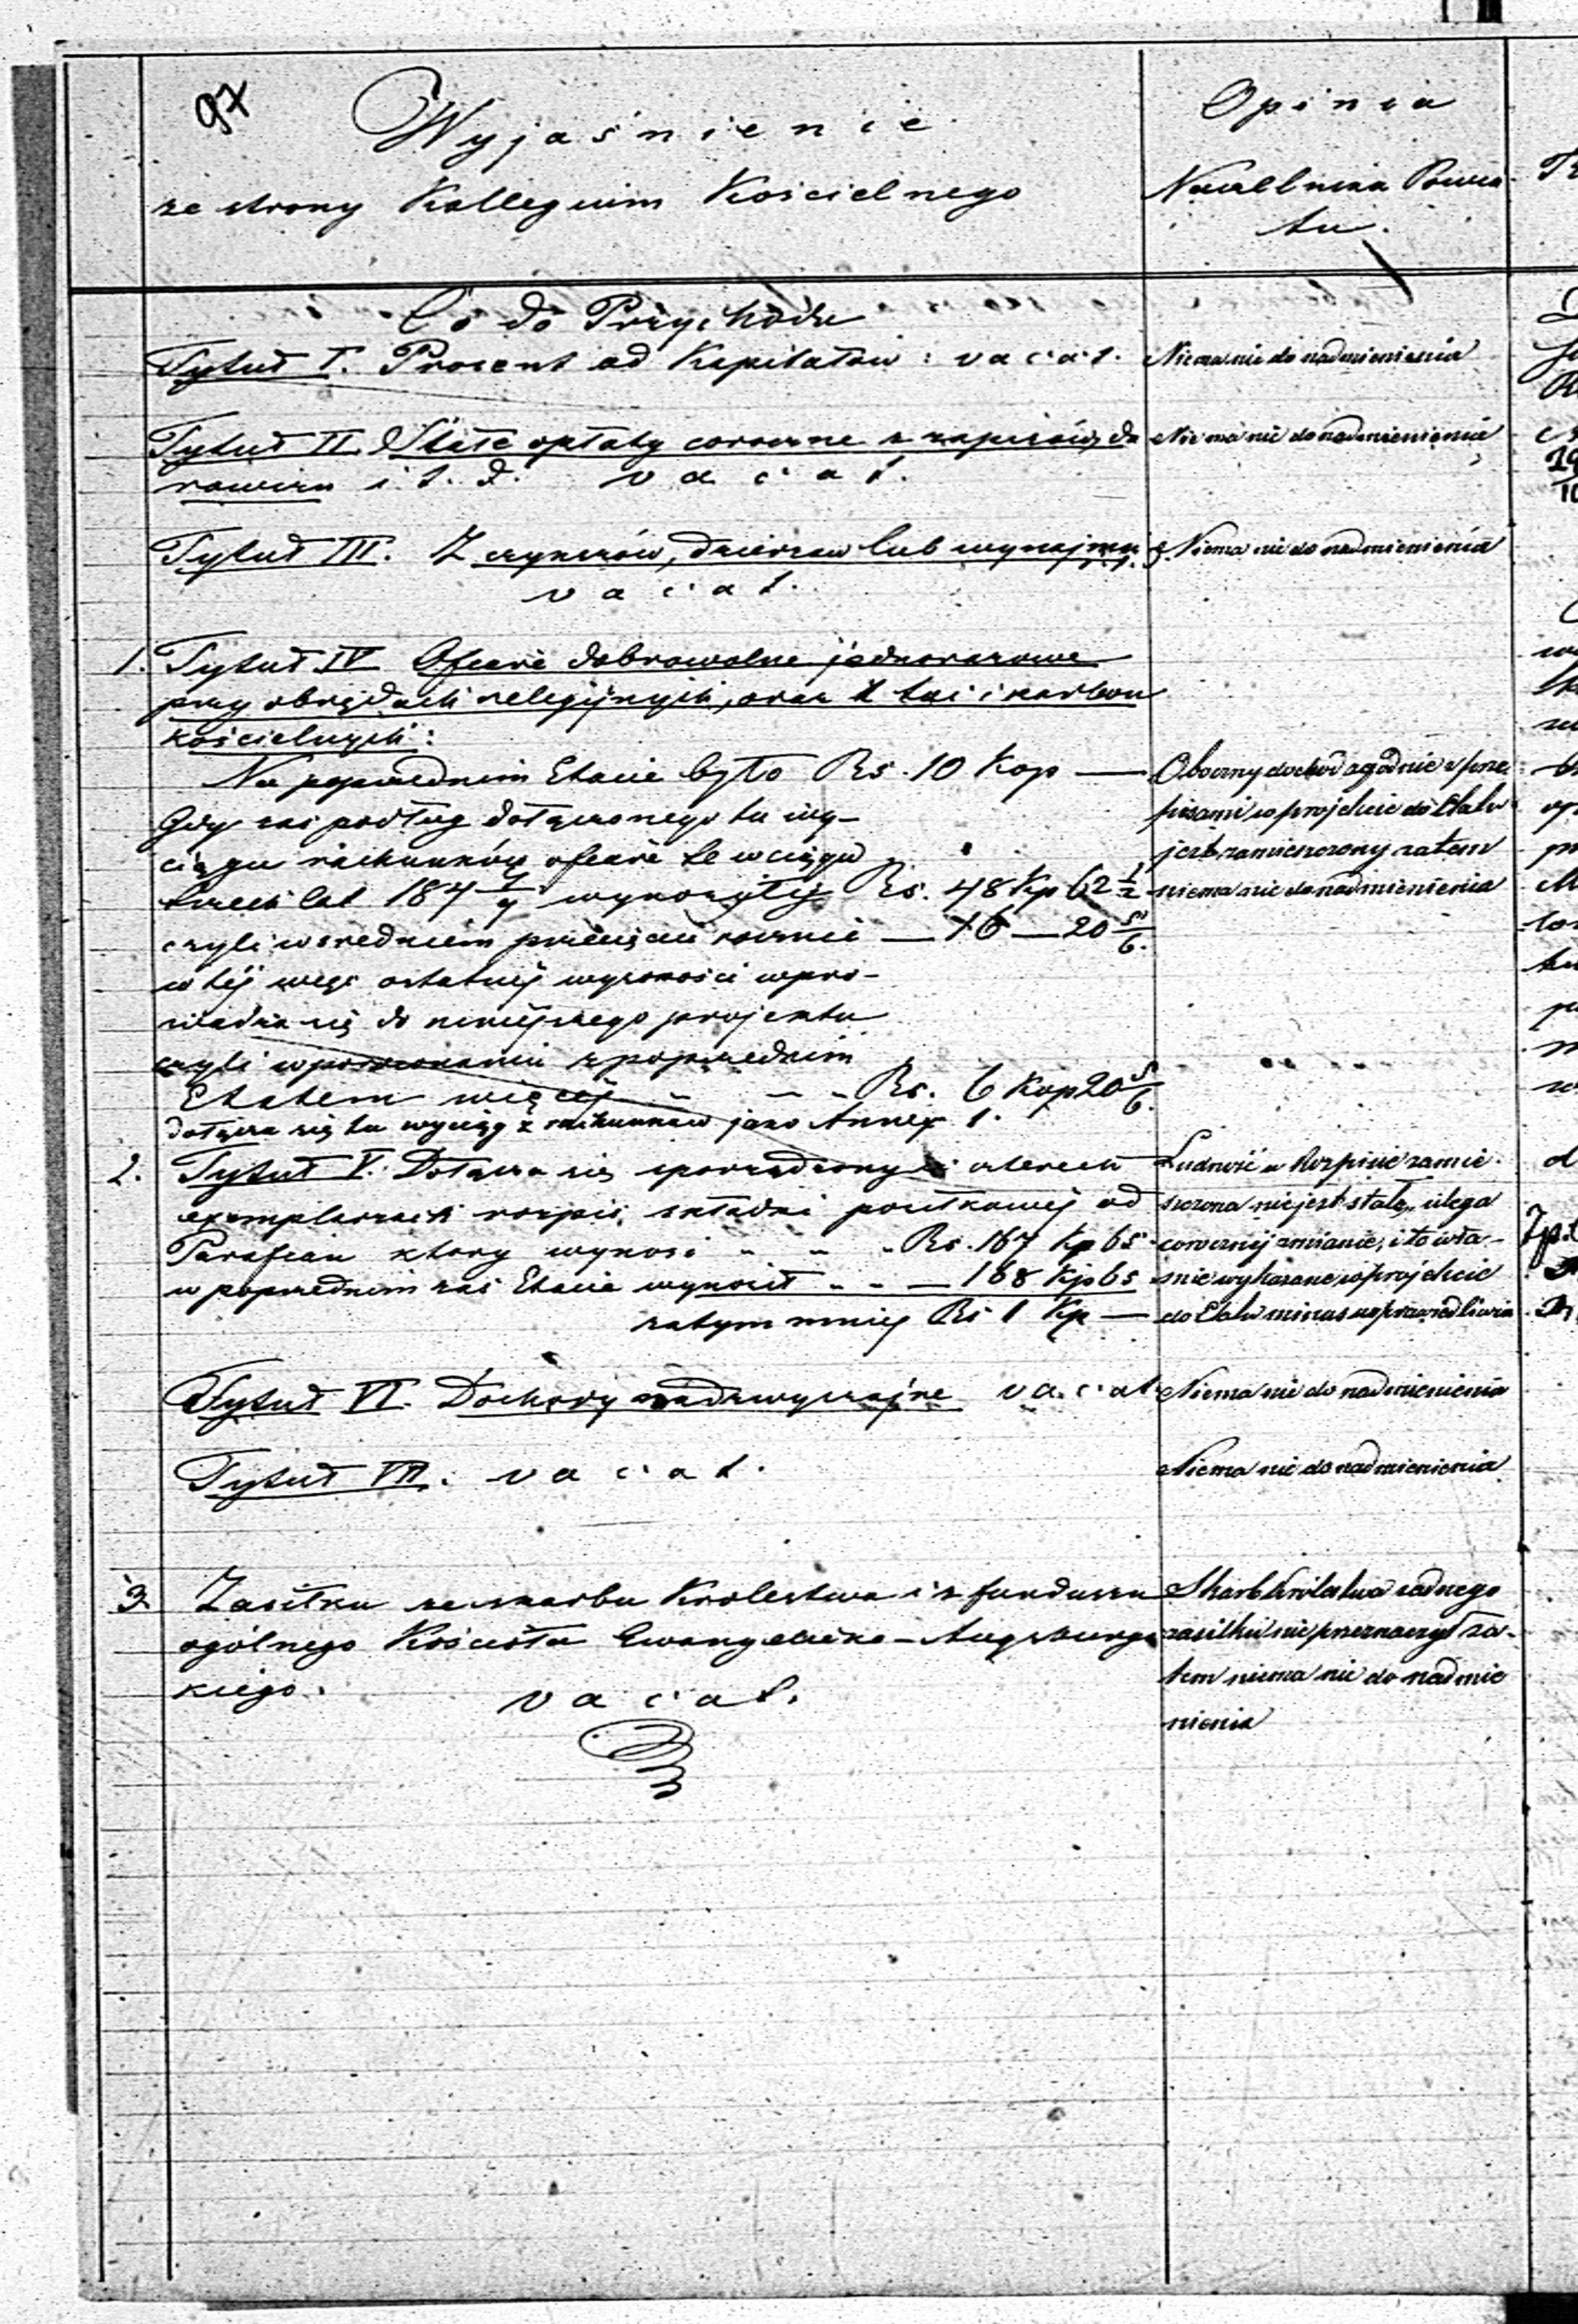 97
Wyjaśnienie
ze strony Kollegium Kościelnego
Opinia
Naczelnika Powia-
tu.
Co do Przychodu
Tytuł I. Procent od Kapitałów: vacat.
Niema nic do nadmienienia
Tytuł II. Stałe opłaty coroczne z zapisów, da
rowizn i t. d. vacat.
Niema nic do nadmienienia
Tytuł III. Z czynszów, dzierzaw lub wynajmu
vacat.
Niema nic do nadmienienia
1. Tytuł IV Ofiary dobrowolne jednorazowe
przy obrzędach religijnych, oraz z tac i karbon
kościelnych:
Na poprzednim Etacie było Rs. 10 Kop —
Gdy zaś podług dołączonego tu wy-
ciągu rachunków ofiary te w ciągu
trzech lat 184 7/9 wynosiły Rs. 48 Kp 62 1/2
czyli w średniem przecięciu rocznie — 16 — 20 5/6.
w téj więc ostatniéj wysokości wpro-
wadza się do niniejszego projektu
czyli w porównaniu z poprzednim
Etatem więcéj - - - Rs. 6 Kop 20 5/6.
dołącza się tu wyciąg z rachunków jako Annex 1.
Oboczny dochód zgodnie z prze-
pisami w projekcie do Etatu
jest zamieszczony zatem
niema nic do nadmienienia
2. Tytuł V. Dołącza się sporządzony w czterech
exemplarzach rozpis składki posiłkowéj od
Parafian który wynosi - - - Rs. 167 Kp 65
w poprzednim zaś Etacie wynosił - - — 168 Kp 65
zatym mniéj Rs 1 Kp —
Ludność w Rozpisie zamie-
szczona nie jest stałą, ulega
corocznéj zmianie, i to wła-
śnie wykazane w projekcie
do Etatu minus usprawiedliwia
Tytuł VI. Dochody nadzwyczajne vacat
Niema nic do nadmienienia
Tytuł VII. vacat.
Niema nic do nadmienienia
3. Zasiłku ze skarbu Krolestwa i z funduszu
ogólnego Kościoła Ewangelicko-Augsburgs
kiego. vacat.
Skarb Królestwa żadnego
zasiłku nie przeznaczył za-
tem niema nic do nadmie
nienia